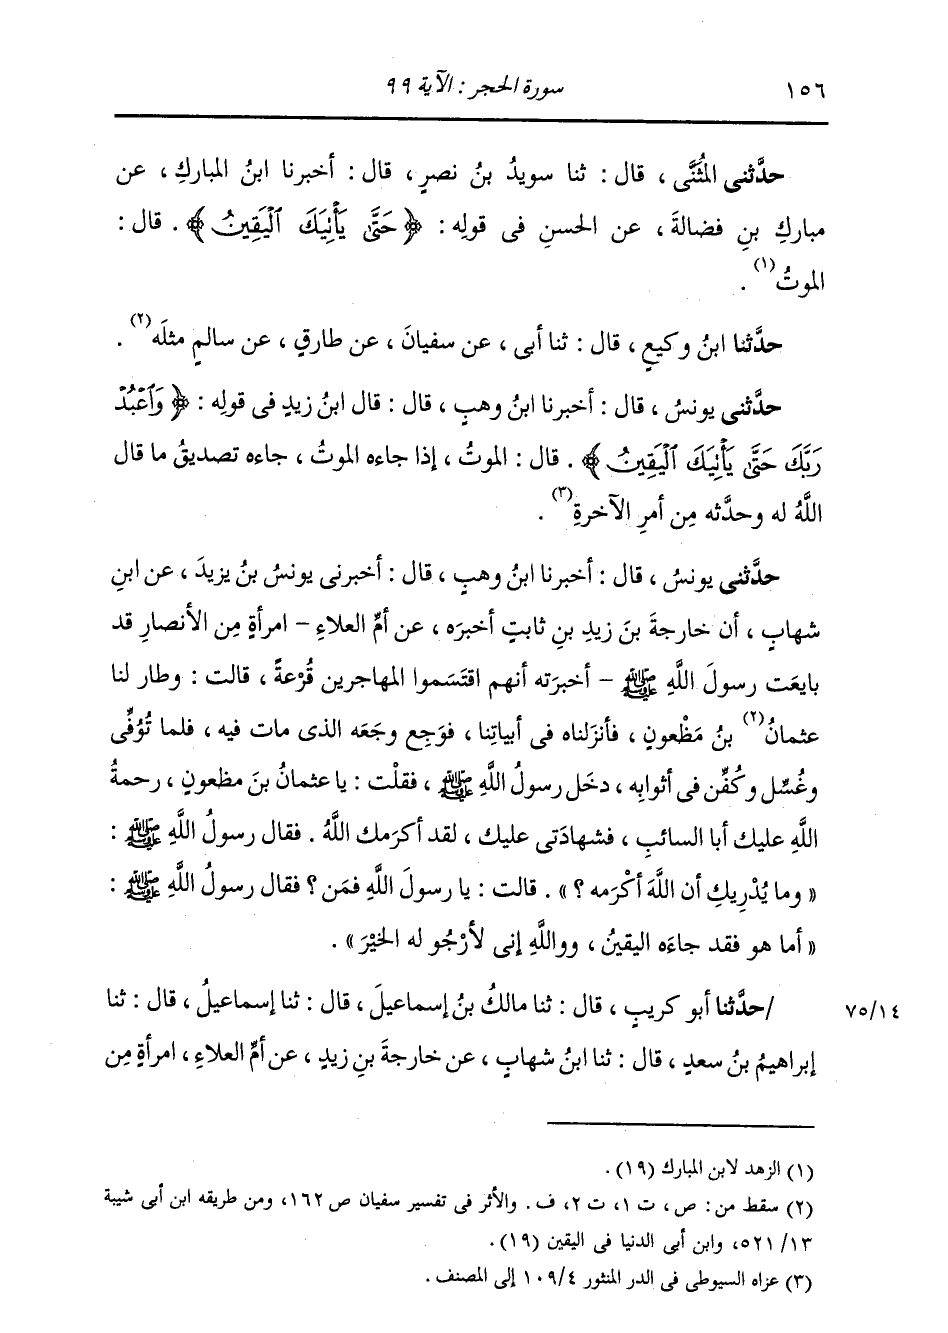 ١٥٦ سورة الحجر : الآية ٩٩
حدَّثنى المُثَنَّى ، قال : ثنا سويدُ بنُ نصرٍ ، قال : أخبرنا ابنُ المباركِ ، عن
مباركِ بنِ فضالةَ ، عن الحسنِ فى قولِه : ﴿ حَتَّىٰ يَأْنِيَكَ ٱلْيَقِينُ ﴾ . قال :
الموتُ(١) .
حدَّثنا ابنُ وكيعٍ ، قال : ثنا أبى ، عن سفيانَ ، عن طارقٍ ، عن سالمٍ مثلَه(٢) .
حدَّثنى يونسُ ، قال : أخبرنا ابنُ وهبٍ ، قال : قال ابنُ زيدٍ فى قولِه : ﴿ وَٱعْبُدْ
رَبَّكَ حَتَّىٰ يَأْنِيَكَ ٱلْيَقِينُ ﴾ . قال : الموتُ ، إذا جاءه الموتُ ، جاءه تصديقُ ما قال
اللَّهُ له وحدَّثه مِن أمرِ الآخرةِ(٣) .
حدَّثنى يونسُ ، قال : أخبرنا ابنُ وهبٍ ، قال : أخبرنى يونسُ بنُ يزيدَ ، عن ابنِ
شهابٍ ، أن خارجةَ بنَ زيدِ بنِ ثابتٍ أخبرَه ، عن أمِّ العلاءِ – امرأةٍ مِن الأنصارِ قد
بايعَت رسولَ اللَّهِ ﷺ – أخبرَته أنهم اقتَسَموا المهاجرين قُرْعةً ، قالت : وطار لنا
عثمانُ(٢) بنُ مَظْعونٍ ، فأنزَلناه فى أبياتِنا ، فوَجِع وجَعَه الذى مات فيه ، فلما تُوُفِّى
وغُسِّل وكُفِّن فى أثوابِه ، دخَل رسولُ اللَّهِ ﷺ ، فقلْت : يا عثمانُ بنَ مظعونٍ ، رحمةُ
اللَّهِ عليك أبا السائبِ ، فشهادَتى عليك ، لقد أكرَمك اللَّهُ . فقال رسولُ اللَّهِ ﷺ :
« وما يُدْرِيكِ أن اللَّهَ أكْرَمه ؟ » . قالت : يا رسولَ اللَّهِ فمَن ؟ فقال رسولُ اللَّهِ ﷺ :
« أما هو فقد جاءَه اليقينُ ، وواللَّهِ إنى لأرْجُو له الخيْرَ » .
٧٥/١٤ /حدَّثنا أبو كريبٍ ، قال : ثنا مالكُ بنُ إسماعيلَ ، قال : ثنا إسماعيلُ ، قال : ثنا
إبراهيمُ بنُ سعدٍ ، قال : ثنا ابنُ شهابٍ ، عن خارجةَ بنِ زيدٍ ، عن أمِّ العلاءِ ، امرأةٍ مِن
(١) الزهد لابن المبارك (١٩) .
(٢) سقط من : ص ، ت ١، ت ٢، ف . والأثر فى تفسير سفيان ص ١٦٢، ومن طريقه ابن أبى شيبة
١٣/ ٥٢١، وابن أبى الدنيا فى اليقين (١٩).
(٣) عزاه السيوطى فى الدر المنثور ١٠٩/٤ إلى المصنف .